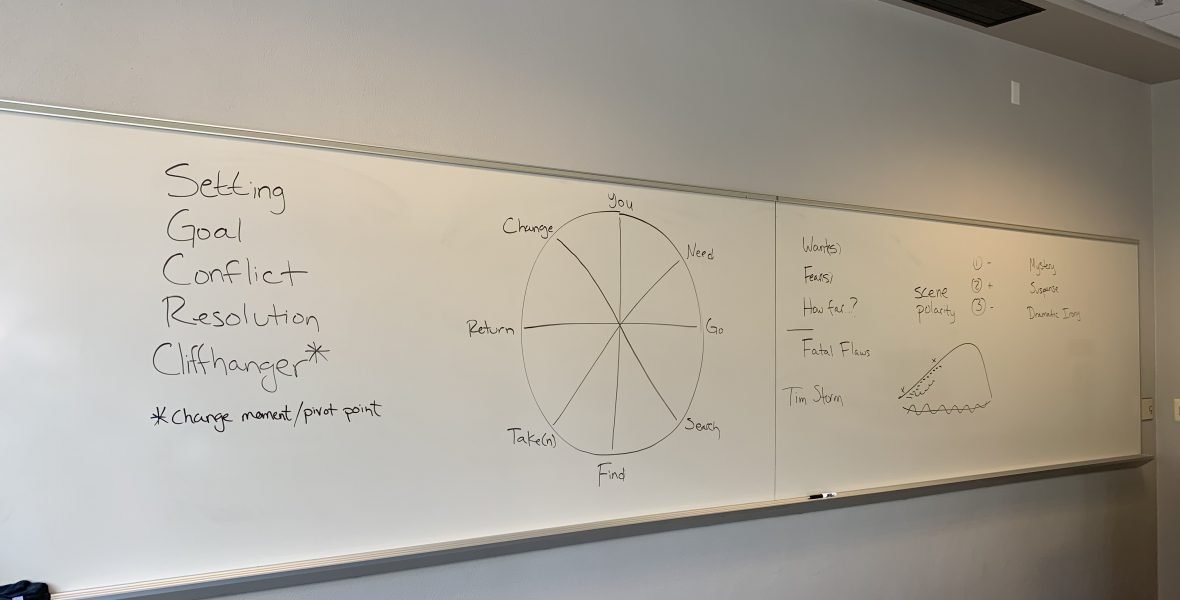 Setting
Goal
Conflict
Resolution
Cliffhanger*
*Change moment/pivot point
You
Need
Go
Search
Find
Take(n)
Return
Change
Want(s)
Fear(s)
How far..?
Fatal Flaws
Tim Storm
scene
polarity
① -
② +
③ -
Mystery
Suspense
Dramatic Irony